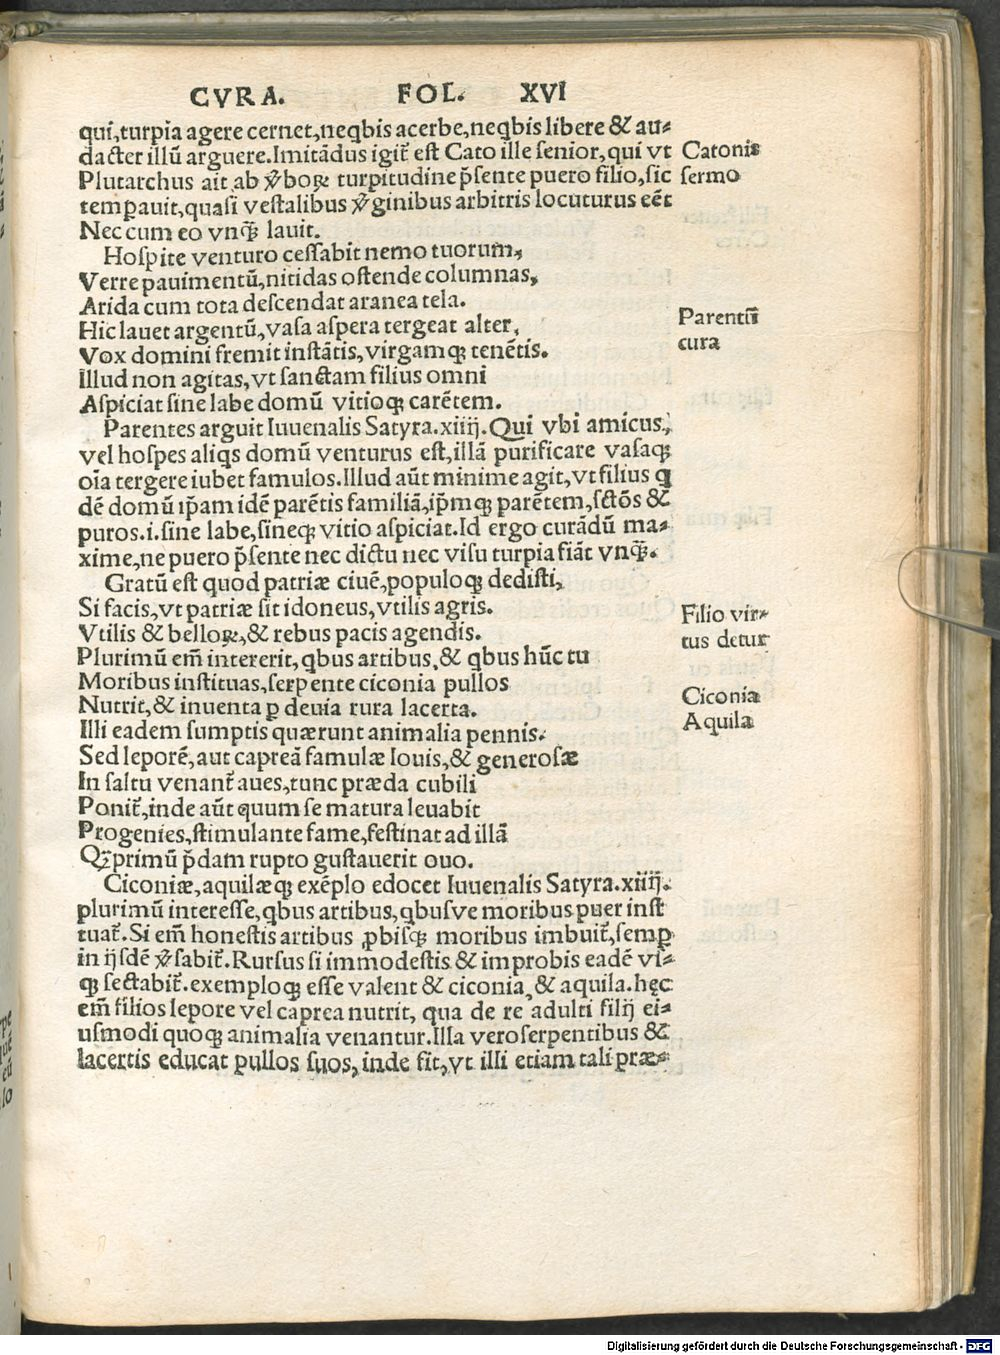 CVRA. FOL. XVI
qui,turpia agere cernet,neqbis acerbe,neqbis libere & au⸗
dacter illũ arguere.Imitãdus igit᷑ est Cato ille senior,qui vt
Plutarchus ait ab v̾boꝝ turpitudine p̃sente puero filio,sic
temꝑauit,quasi vestalibus v̾ginibus arbitris locuturus eẽt
Nec cum eo vnq̃ꝫ lauit.
Hospite venturo cessabit nemo tuorum,
Verre pauimentũ,nitidas ostende columnas,
Arida cum tota descendat aranea tela.
Hic lauet argentũ,vasa aspera tergeat alter,
Vox domini fremit instãtis,virgamqꝫ tenẽtis.
Illud non agitas,vt sanctam filius omni
Aspiciat sine labe domũ vitioqꝫ carẽtem.
Parentes arguit Iuuenalis Satyra.xiiij.Qui vbi amicus,
vel hospes aliqs domũ venturus est,illã purificare vasaqꝫ
oĩa tergere iubet famulos.Illud aũt minime agit,vt filius q
dẽ domũ ip̃am idẽ parẽtis familiã,ip̃mqꝫ parẽtem,sctõs &
puros.i.sine labe,sineqꝫ vitio aspiciat.Id ergo curãdũ ma⸗
xime,ne puero p̃sente nec dictu nec visu turpia fiãt vnq̃ꝫ.
Gratũ est quod patriæ ciuẽ,populoqꝫ dedisti,
Si facis,vt patriæ sit idoneus,vtilis agris.
Vtilis & belloꝝ,& rebus pacis agendis.
Plurimũ em̃ intererit,qbus artibus,& qbus hũc tu
Moribus instituas,serpente ciconia pullos
Nutrit,& inuenta ꝑ deuia rura lacerta.
Illi eadem sumptis quærunt animalia pennis.
Sed leporẽ,aut capreã famulæ Iouis,& generosæ
In saltu venant᷑ aues,tunc præda cubili
Ponit᷑,inde aũt quum se matura leuabit
Progenies,stimulante fame,festinat ad illã
Qꝫprimũ p̃dam rupto gustauerit ouo.
Ciconiæ,aquilæqꝫ exẽplo edocet Iuuenalis Satyra.xiiij.
plurimũ interesse,qbus artibus,qbusve moribus puer inst
tuat᷑.Si em̃ honestis artibus ꝓbisqꝫ moribus imbuit᷑,semꝑ
in ijsdẽ v̾sabit᷑.Rursus si immodestis & improbis eadẽ vi⸗
qꝫ sectabit᷑.exemploqꝫ esse valent & ciconia,& aquila.hęc
em̃ filios lepore vel caprea nutrit, qua de re adulti filij ei⸗
usmodi quoqꝫ animalia venantur.Illa vero serpentibus &
lacertis educat pullos suos,inde fit,vt illi etiam tali præ⸗
Catonis
sermo
Parentũ
cura
Filio vir⸗
tus detur
Ciconia
Aquila
Digitalisierung gefördert durch die Deutsche Forschungsgemeinschaft - DFG